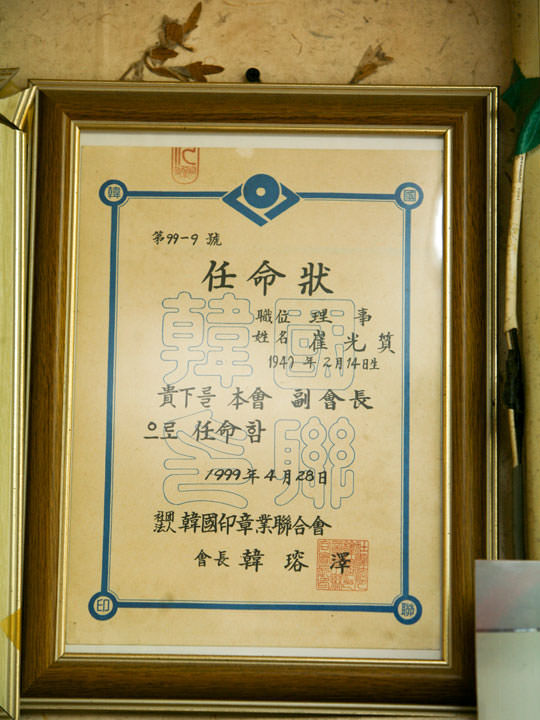 韓 國
第99-9 號
任命狀
職位 理 事
姓名 崔 光
1947年 2月14日生
韓國
印聯
貴下를 本會 副會長
으로 任命함
1999年 4月 28日
社團法人 韓國印章業聯合會
會長 韓 瑢 澤
印 聯